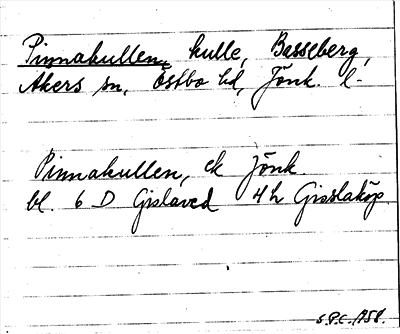 Pinnakullen, kulle, Basseberg,
Åkers sn, Östbo hd, Jönk. l.
Pinnakullen, ek Jönk
bl. 6 D Gislaved 4 h Gisslaköp
S.P.C. 1958.